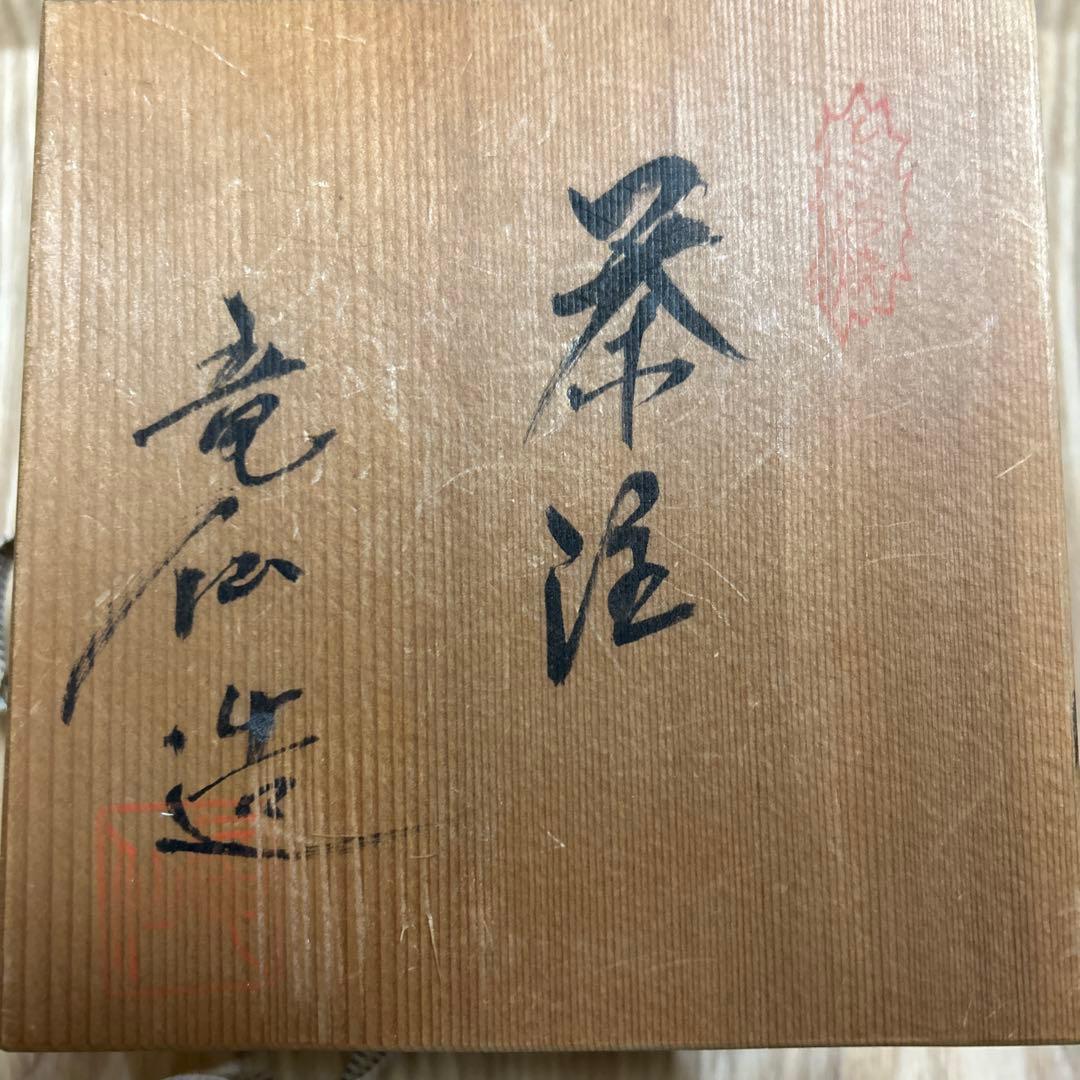 茶注
竜仙造